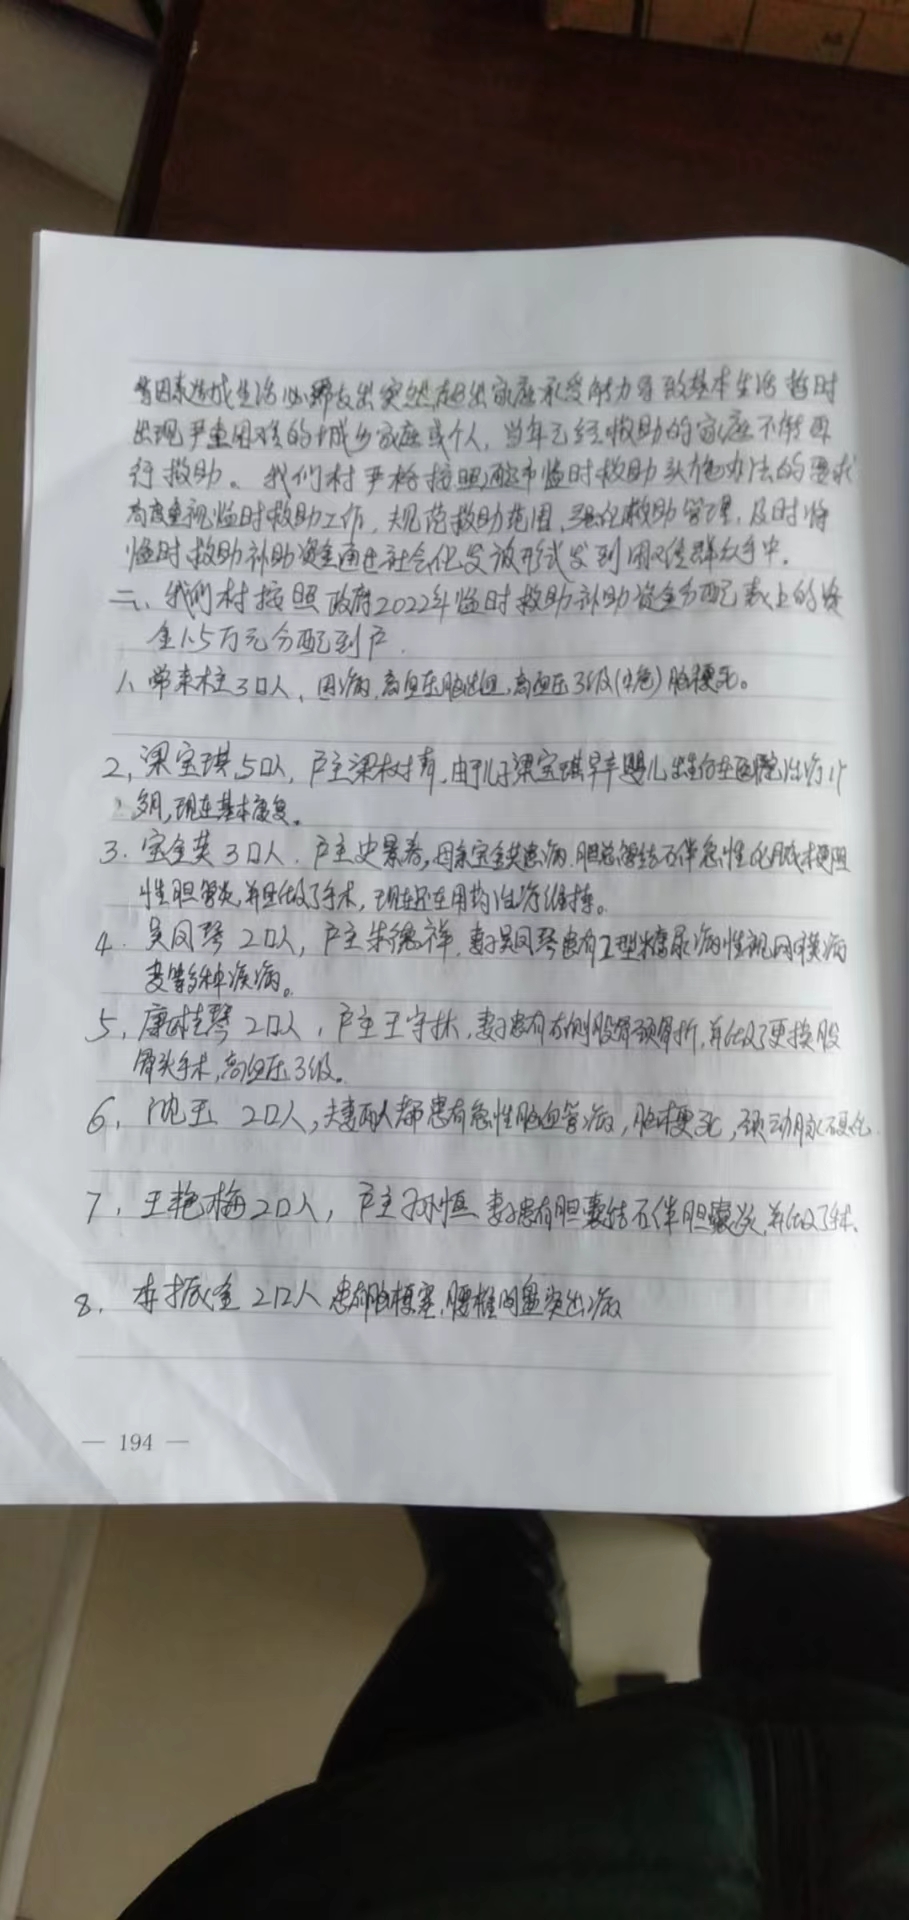 等因素造成生活必需支出突然超出家庭承受能力导致基本生活暂时
出现严重困难的城乡家庭或个人,当年已经救助的家庭不能再
行救助。我们村严格按照 市临时救助实施办法的要求
高度重视临时救助工作,规范救助范围,强化救助管理,及时将
临时救助补助资金通过社会化发放形式发到困难群众手中。
二、我们村按照政府2022年临时救助补助资金分配表上的资
金1.5万元分配到户.
1、常来柱3口人,因病,高血压脑出血,高血压3级( )脑梗死。
2,梁宝琪,5口人,户主梁树青,由于儿子梁宝琪早产婴儿出生后在医院治疗1个
多月,现在基本康复。
3.宝金英3口人.户主史景春,母亲宝金英患病.胆总管结石伴急性化脓 梗阻
性胆管炎,并且做了手术,现在还在用药治疗维持。
4.吴凤琴 2口人,户主朱德祥,妻子吴凤琴患有2型糖尿病性视网膜病
变等多种疾病。
5,康 琴2口人,户主王守林,妻子患有右侧股骨颈骨折,并做了更换股
骨头手术,高血压3级。
6,沈玉 2口人,夫妻两人都患有急性脑血管病,脑梗死,颈动脉硬化.
7,王艳梅2口人,户主孙恒 妻子患有胆囊结石伴胆囊炎,并做了手术.
8.李振金2口人 患有脑梗塞,腰椎间盘突出病
— 194 —